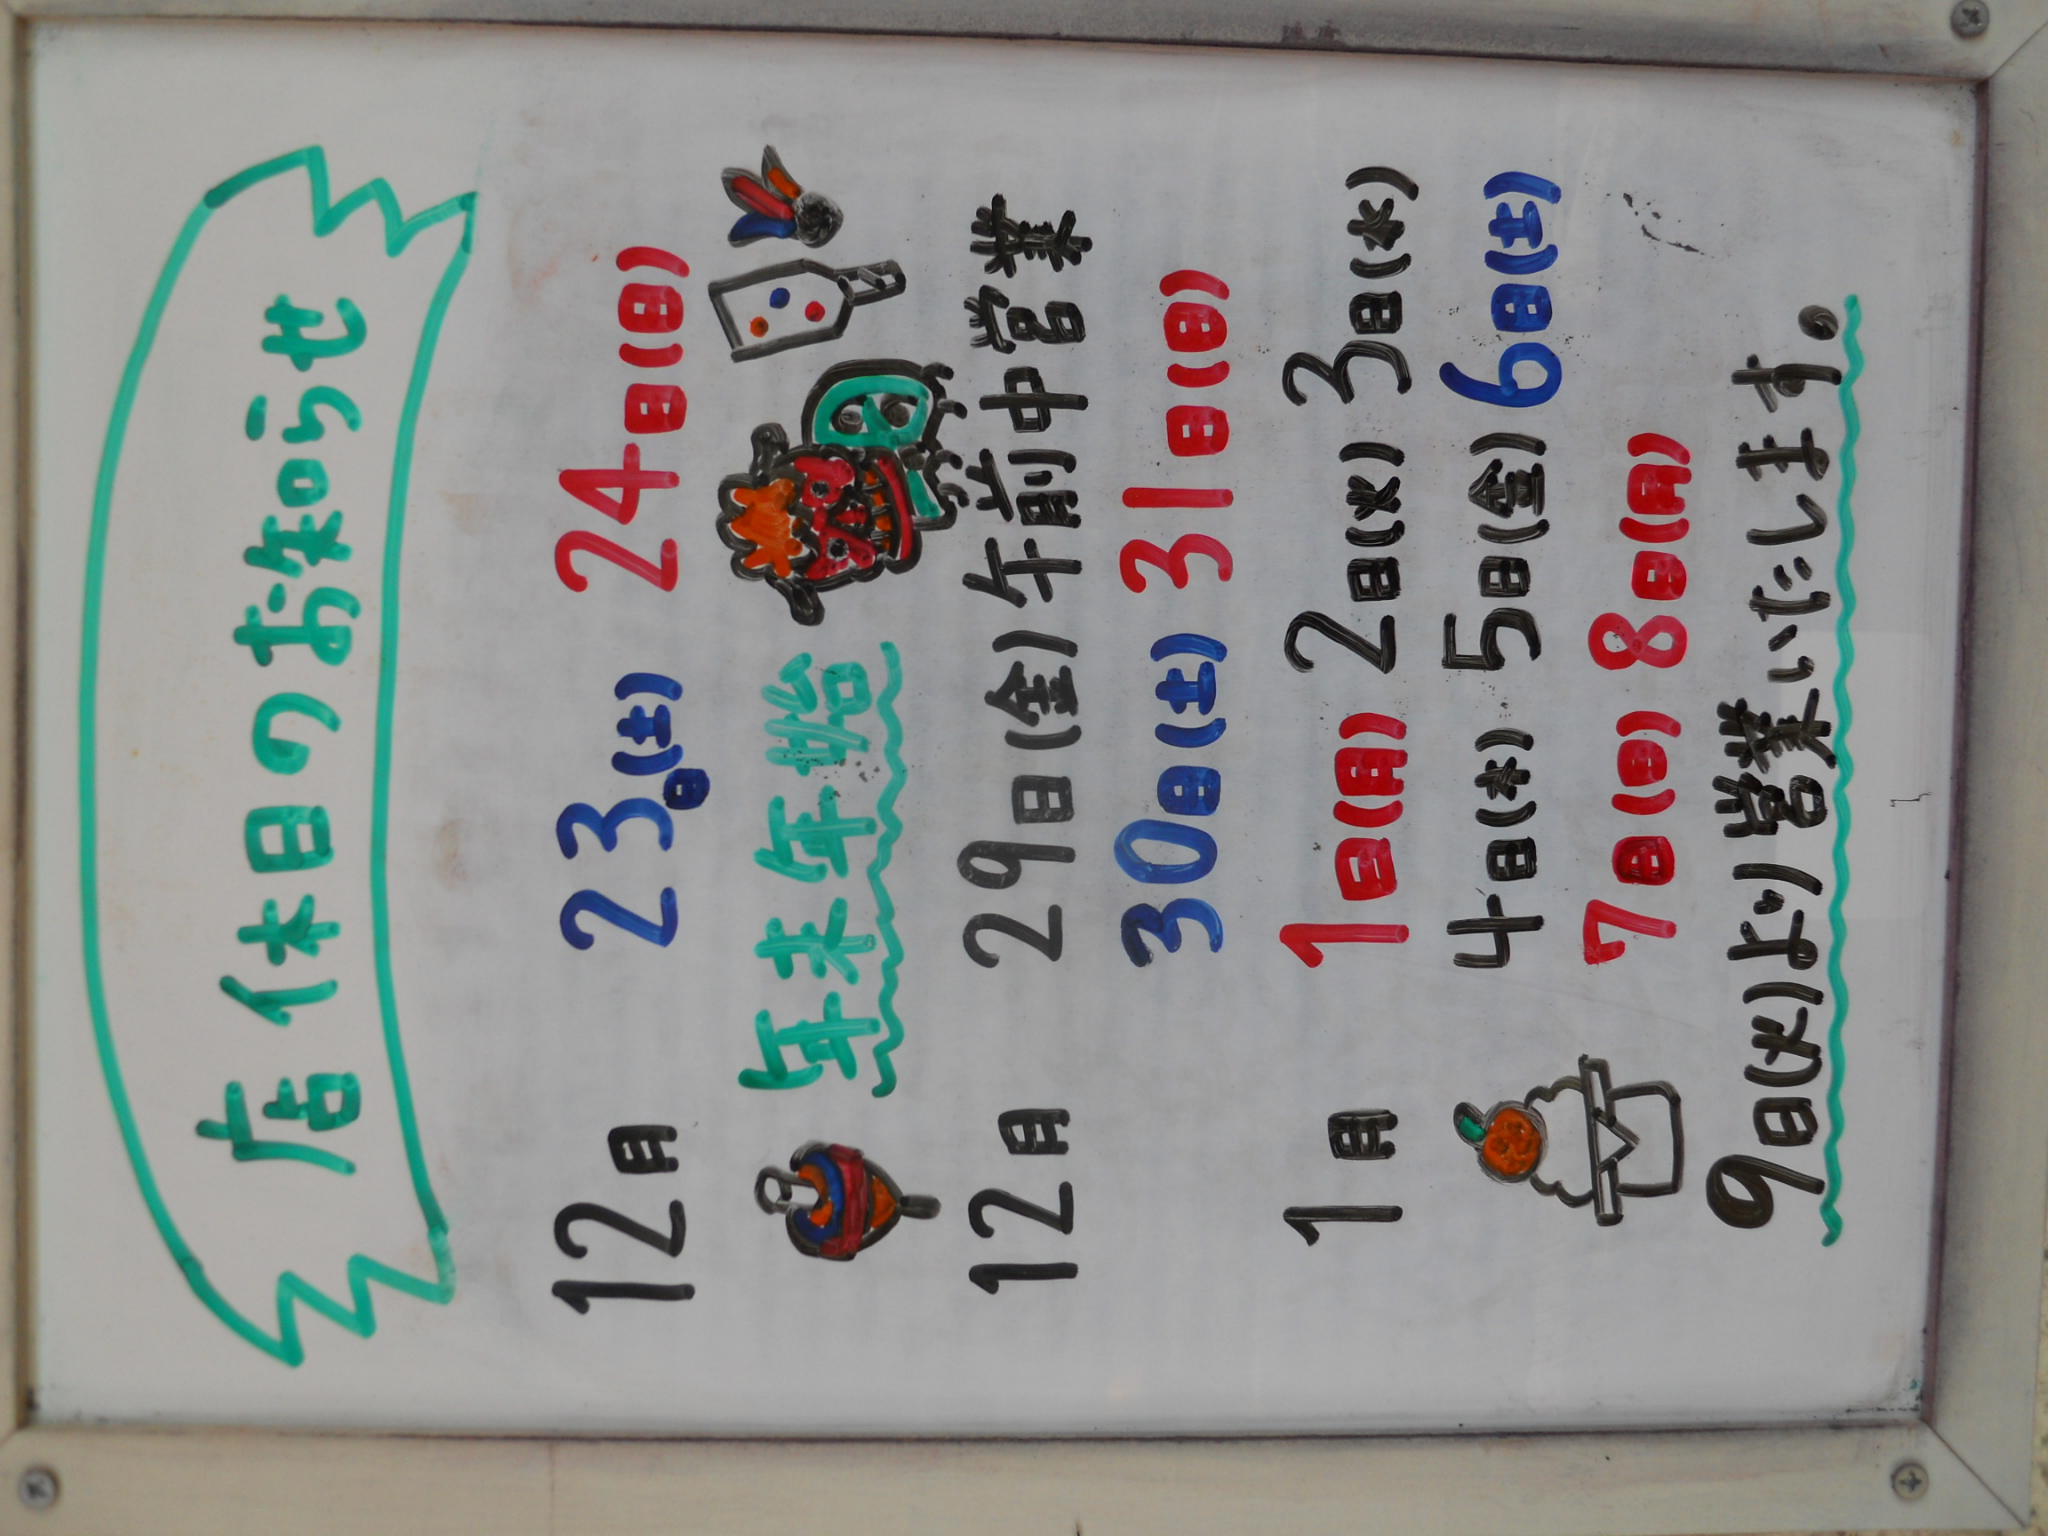 店休日のお知らせ
12月 23日(土) 24日(日)
年末年始
12月 29日(金)午前中営業
30日(土) 31日(日)
1月 1日(月) 2日(火) 3日(水)
4日(木) 5日(金) 6日(土)
7日(日) 8日(月)
9日(火)より営業いたします。